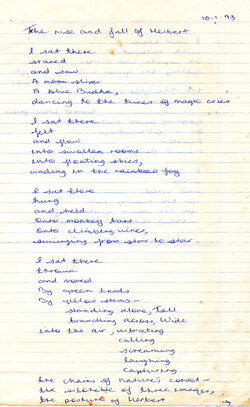 10-1-93
The rise and fall of Herbert
I sat there
stared
and saw
A moon sliper
A blue Budha,
dancing to the tunes of magic cries
I sat there
felt
and flow
into swollen rooms
into floating skies,
wading in the rainbow fog
I sat there
hung
and held
Onto monkey bars
Onto climbing vines,
swinging from star to star
I sat there
thrown
and moved
By green beads
By yellow stems -
standing alone, Tall
branching across, Wide
into the air, vibrating
calling
screaming
laughing
Capturing
the chains of nature's corset -
the silohette of three images,
the posture of Herbert